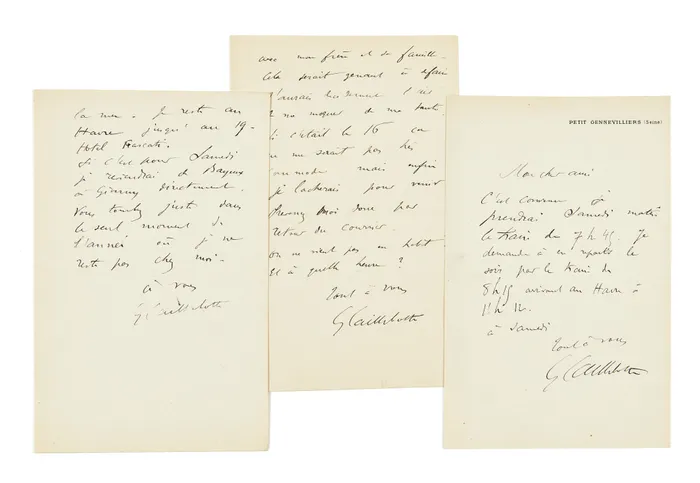 la mer. Je reste au
Havre jusqu'au 19-
Hotel Frascati.
Si c'est pour Samedi
je reviendrai de Bayeux
à Giverny directement.
Vous tombez juste dans
le seul moment de
l'année où je ne
reste pas chez moi-
à vous
G Caillebotte
avec mon frère et sa famille.
Cela serait genant à
ne manquer de me
si c'était le 16 ca
ne me serait pas très
commode mais enfin
je lacherais pour venir
moi donc par
retour du courrier.
on ne vient pas en habit
Et à quelle heure ?
Tout à vous
G Caillebotte
PETIT GENNEVILLIERS (Seine)
Mon cher ami
C'est convenu je
prendrai Samedi matin
le train de 7h 45. Je
demande à en repartir le
soir par le train de
8h15 arrivant au Havre à
11h 12.
à Samedi
Tout à vous
G Caillebotte